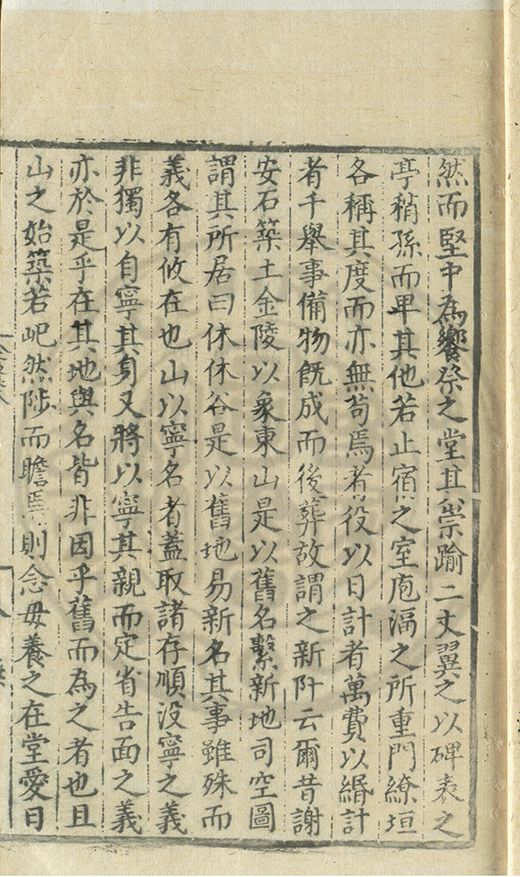 然而堅中為饗祭之堂其崇踰二丈翼之以碑表之
亭稍孫而卑其他若止宿之室庖湢之所重門繚垣
各稱其度而亦無苟焉者役以日計者萬費以緡計
者千舉事備物既成而後葬故謂之新阡云爾昔謝
安石築土金陵以象東山是以舊名繫新地司空圖
謂其所居曰休休谷是以舊地易新名其事雖殊而
義各有攸在也山以寧名者蓋取諸存順没寧之義
非獨以自寧其身又將以寧其親而定省告面之義
亦於是乎在其地與名皆非因乎舊而為之者也且
山之始築若屺然陟而瞻焉則念毋養之在堂愛日